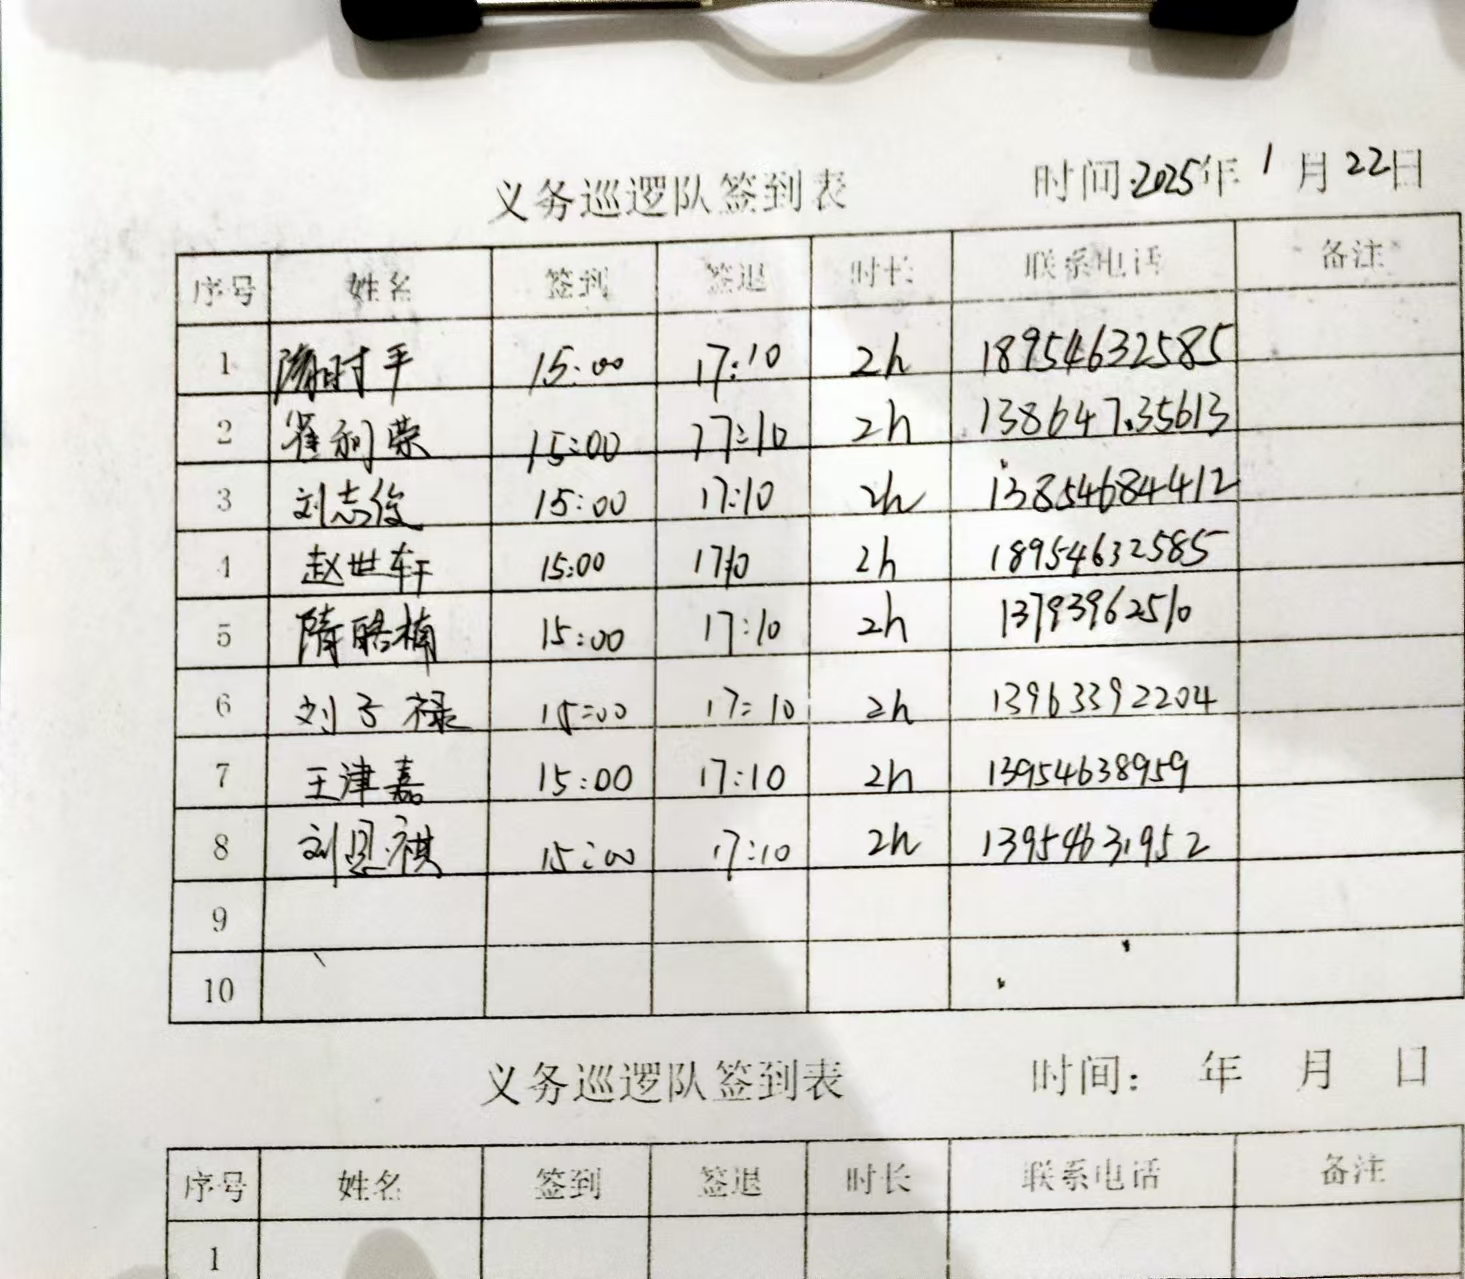 义务巡逻队签到表 时间:2025年1月22日
序号 姓名 签到 签退 时长 联系电话 备注
1 隋时平 15:00 17:10 2h 18954632585
2 崔利荣 15:00 17:10 2h 13864735613
3 刘志俊 15:00 17:10 2h 13854684412
4 赵世轩 15:00 17:10 2h 18954632585
5 隋皓楠 15:00 17:10 2h 13793962510
6 刘子禄 15:00 17:10 2h 13963392204
7 王津嘉 15:00 17:10 2h 13954638959
8 刘恩祺 15:00 17:10 2h 13954631952
9
10
义务巡逻队签到表 时间: 年 月 日
序号 姓名 签到 签退 时长 联系电话 备注
1